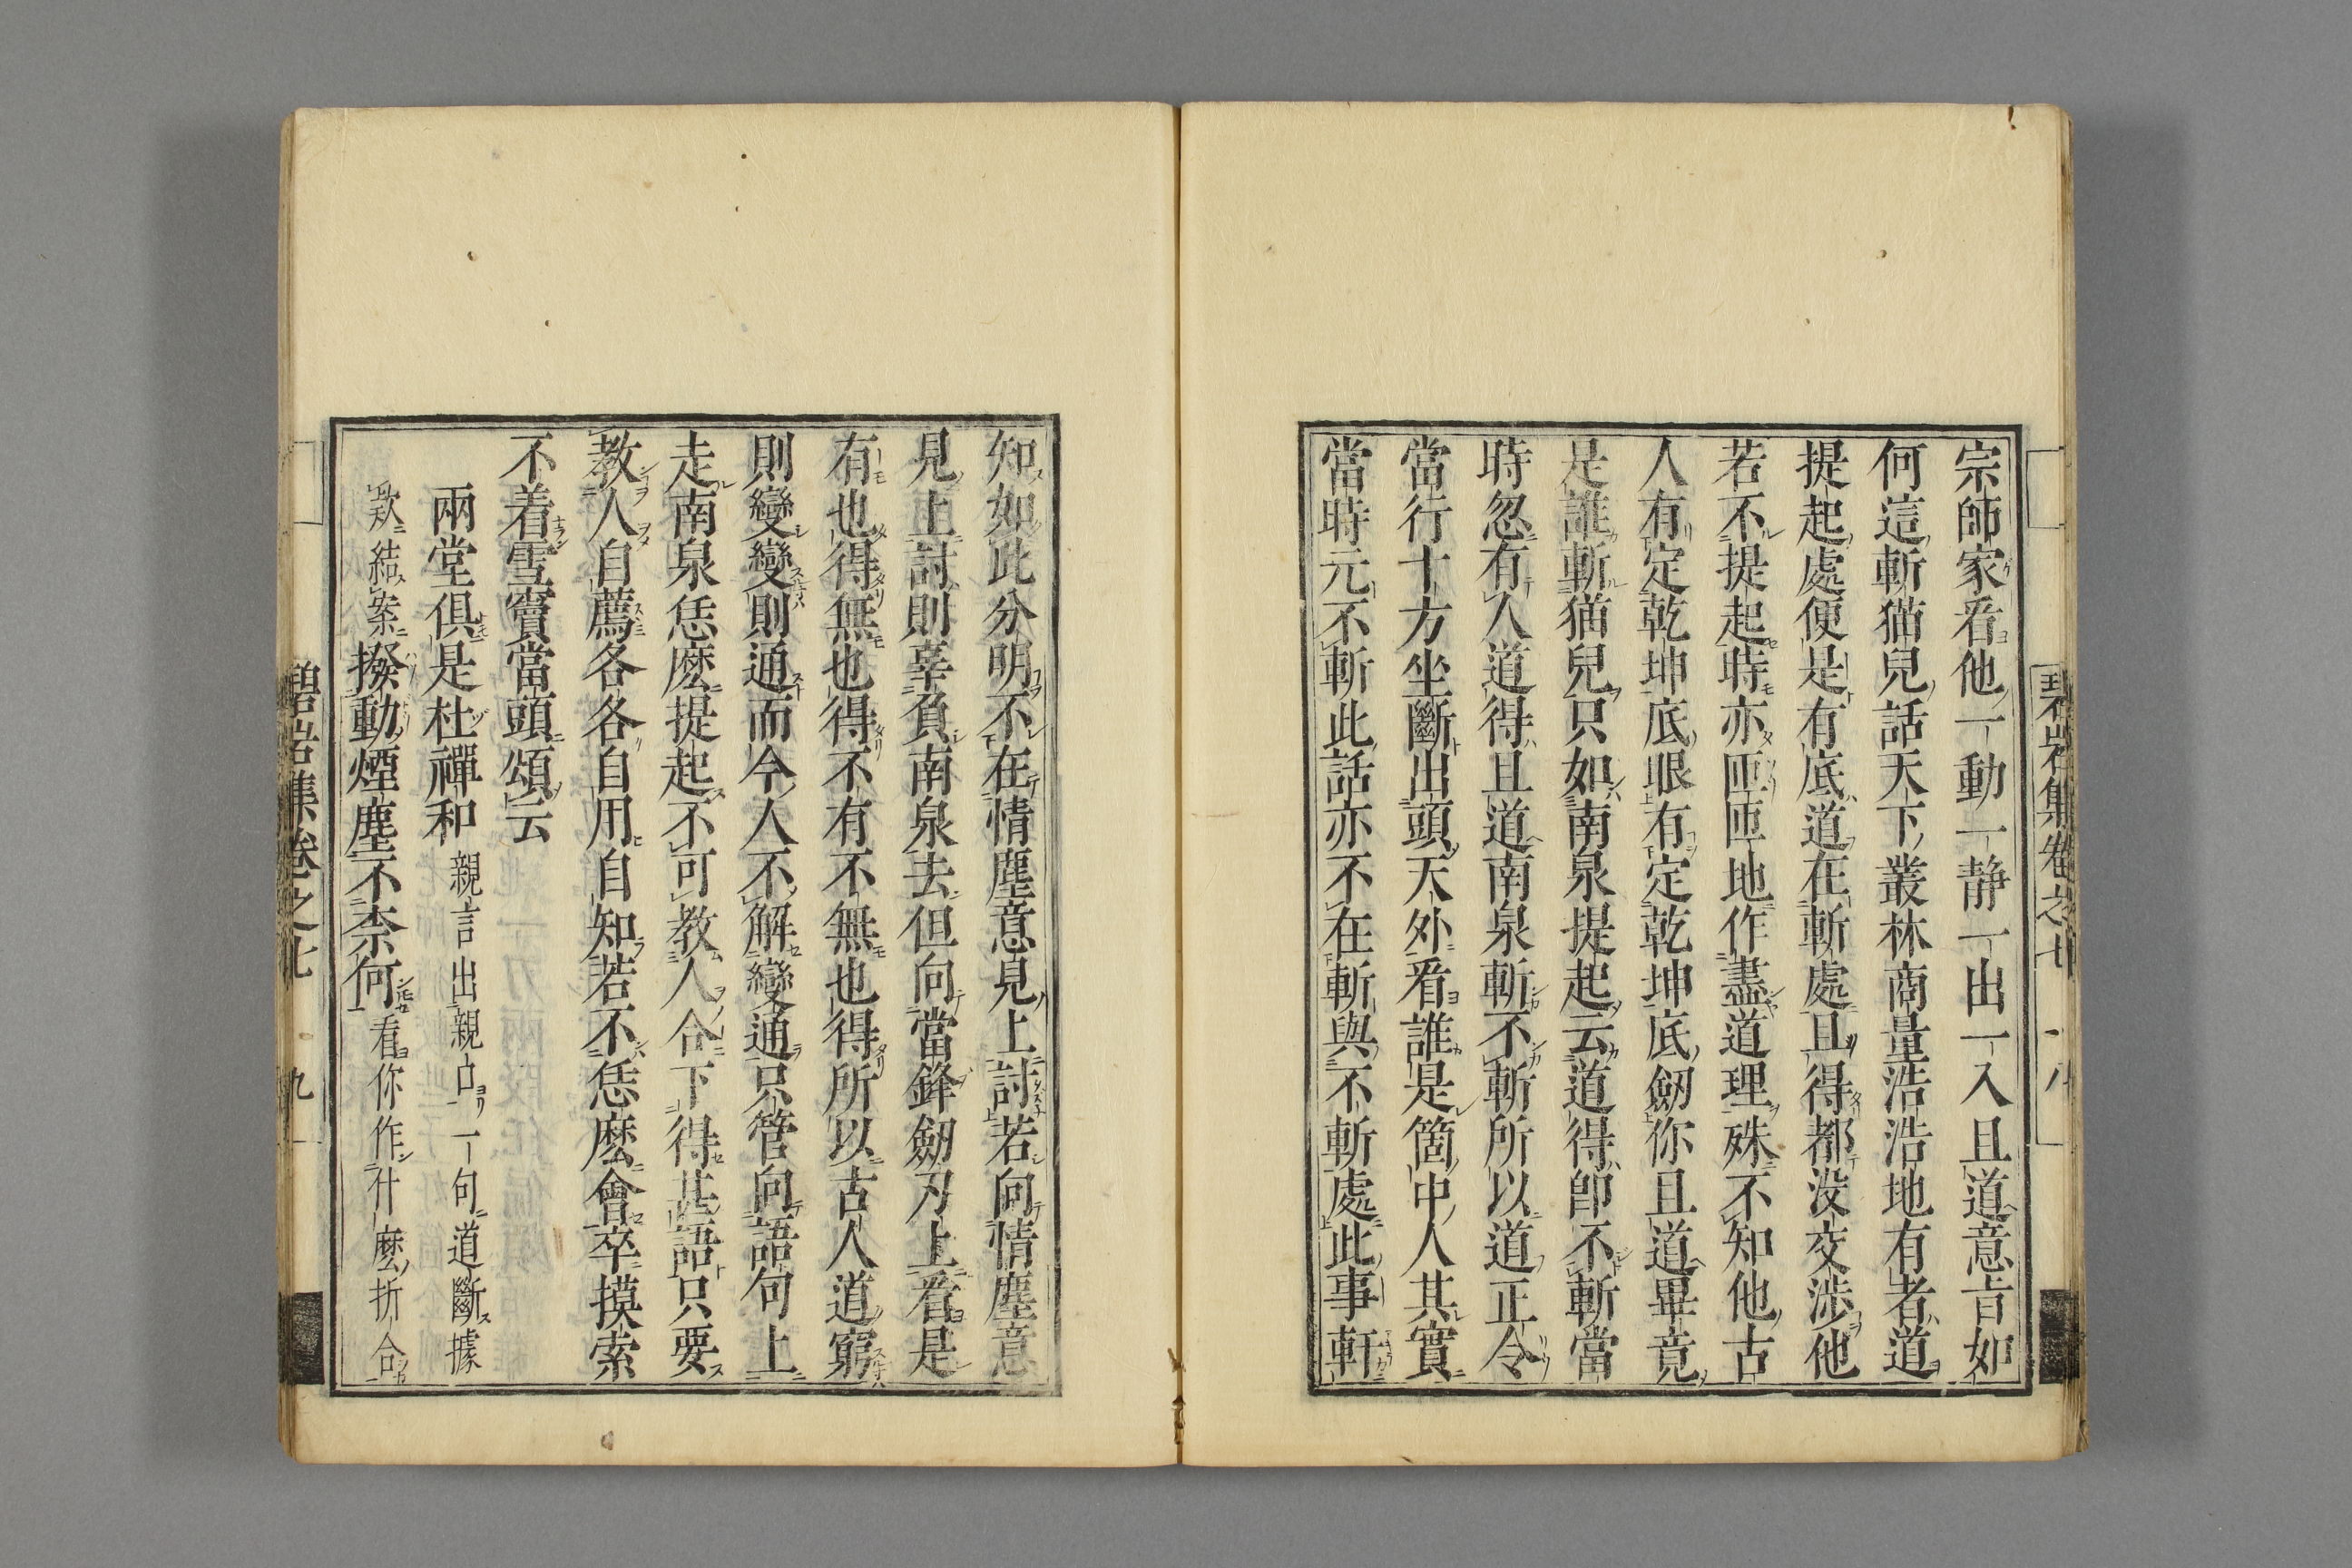 宗師家看他一動一静一出一入且道意旨如
何這斬猫兒話天下叢林商量浩浩地有者道
提起處便是有底道在斬處且得都没交渉他
若不提起時亦匝匝地作盡道理殊不知他古
人有定乾坤底眼有定乾坤底劒你且道畢竟
是誰斬猫兒只如南泉提起云道得卽不斬當
時忽有人道得且道南泉斬不斬所以道正令
當行十方坐斷出頭天外看誰是箇中人其實
當時元不斬此話亦不在斬與不斬處此事軒
碧岩集卷之七
十八
知如此分明不在情塵意見上討若向情塵意
見上討則辜負南泉去但向當鋒劒刃上看是
有也得無也得不有不無也得所以古人道窮
則變變則通而今人不解變通只管向語句上
走南泉恁麽提起不可教人合下得甚語只要
教人自薦各各自用自知若不恁麽會卒摸索
不着雪竇當頭頌云
兩堂俱是杜禪和 親言出親口一句道斷據
欵結案 撥動煙塵不奈何 看你作什麽折合
碧岩集卷之七
九